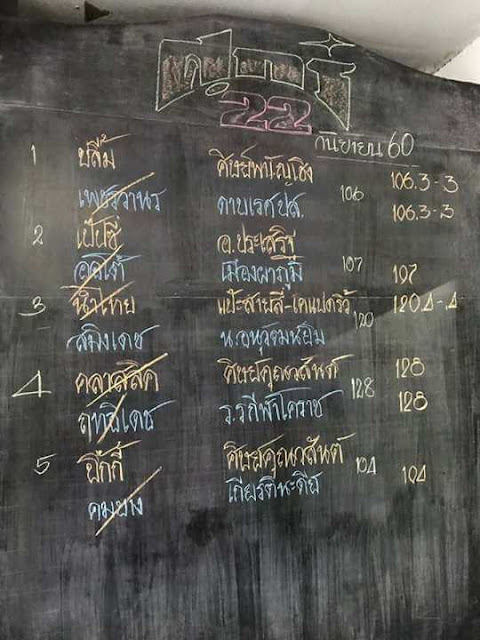 ศุกร์
22
กันยายน 60
1 ปลื้ม ศิษย์พนัญเชิง 106 106.3-3
เพชรวานร ดาบเรศปส. 106.3-.3
2 เป๊ปซี่ อ.ประเสริฐ 107 107
เมืองผาภูมิ
3 น้ำไทย แป๊ะสายสี่-เคแปดรีวิ 120 120.4-.4
สมิงเดช น.อนุวัฒน์ยิม
4 คลาสสิค ศิษย์คุณวสันต์ 128 128
ฤทธิเดช ว.รกีฬาโคราช 128
5 บิ๊กกี้ ศิษย์คุณวสันต์ 104 104
คมบาง เกียรตินะดิษ